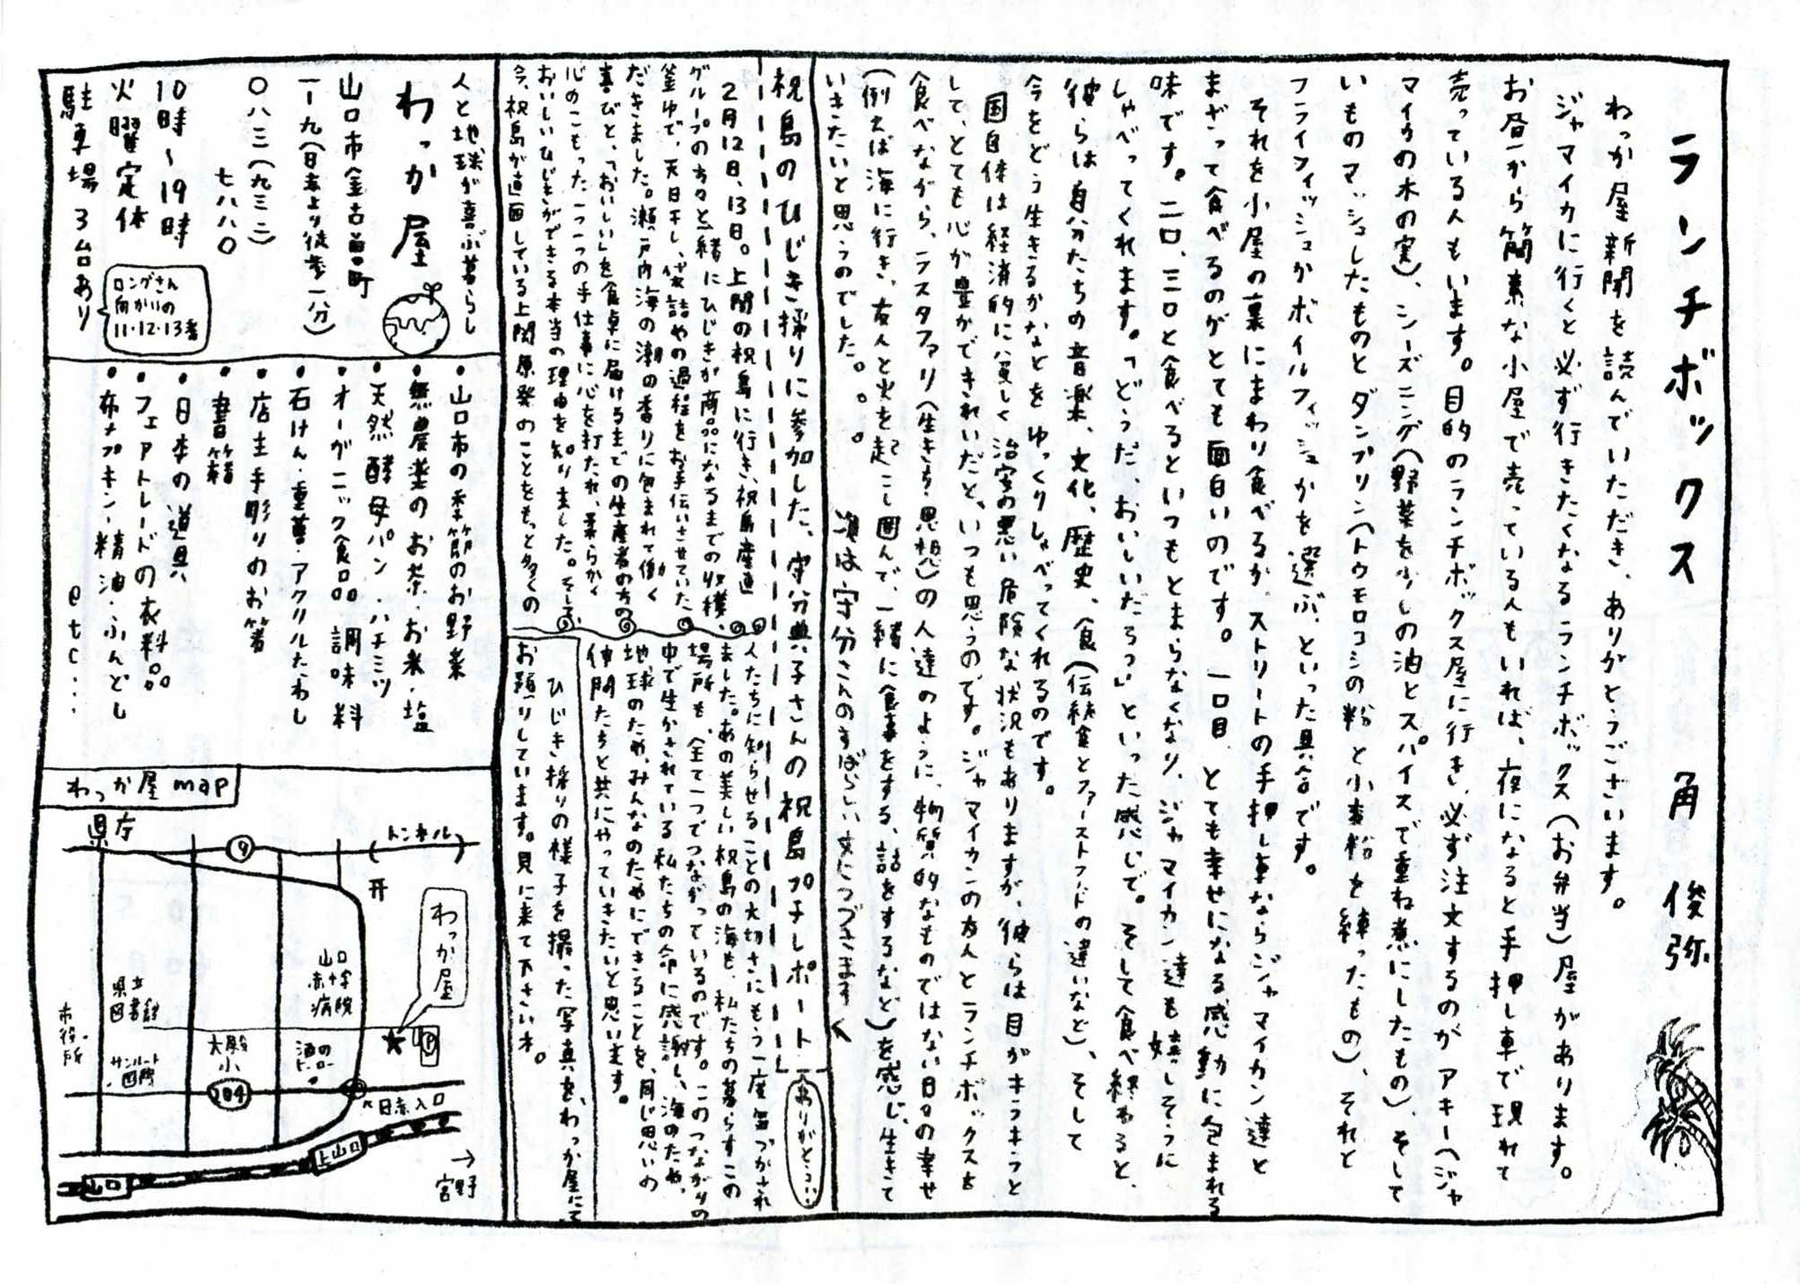 ランチボックス 角 俊弥
わっか屋新聞を読んでいただき、ありがとうございます。
ジャマイカに行くと必ず行きたくなるランチボックス(お弁当)屋があります。
お昼から簡素な小屋で売っている人もいれば、夜になると手押し車で現れて
売っている人もいます。目的のランチボックス屋に行き、必ず注文するのが アキー(ジャ
マイカの木の実)、シーズニング(野菜を少しの油とスパイスで重ね煮にしたもの)、そして
いものマッシュしたものとダンプリン(トウモロコシの粉と小麦粉を練ったもの)、それと
フライフィッシュかボイルフィッシュかを選ぶ、といった具合です。
それを小屋の裏にまわり食べるか、ストリートの手押し車ならジャマイカン達と
まざって食べるのがとても面白いのです。一口目、とても幸せになる感動に包まれる
味です。二口、三口と食べるといつもとまらなくなり、ジャマイカン達も嬉しそうに
しゃべってくれます。「どうだ、おいしいだろっ」といった感じで。そして食べ終わると、
彼らは自分たちの音楽、文化、歴史、食(伝統食とファーストフードの違いなど)、そして
今をどう生きるかなどを ゆっくりしゃべってくれるのです。
国自体は経済的に貧しく 治安の悪い危険な状況もありますが、彼らは目がキラキラと
して、とても心が豊かできれいだと、いつも思うのです。ジャマイカンの友人とランチボックスを
食べながら、ラスタファリ(生きる思想)の人達のように、物質的なものではない日々の幸せ
(例えば海に行き、友人と火を起こし囲んで一緒に食事をする、話をするなど)を感じ、生きて
いきたいと思うのでした。。。
次は守分さんのすばらしい文につづきます
祝島のひじき採りに参加した、守分典子さんの祝島プチレポート
ありがとうございます
2月12日、13日。上関の祝島に行き、祝島産直
グループの方々と一緒にひじきが商品になるまでの収穫、
釜ゆで、天日干し、袋詰めの過程をお手伝いさせていた
だきました。瀬戸内海の潮の香りに包まれて働く
喜びと、「おいしい」を食卓に届けるまでの生産者の方の
心のこもった一つ一つの手仕事に心を打たれ、柔らかく
おいしいひじきができる本当の理由を知りました。そして
今、祝島が直面している上関原発のことをもっと多くの
人たちに知らせることの大切さにもう一度気づかされ
ました。あの美しい祝島の海も、私たちの暮らすこの
場所も、全て一つでつながっているのです。このつながりの
中で生かされている私たちの命に感謝し、海のため、
地球のため、みんなのためにできることを、同じ思いの
仲間たちと共にやっていきたいと思います。
ひじき採りの様子を撮った写真を、わっか屋にて
お頒りしています。見に来て下さいネ。
人と地球が喜ぶ暮らし
わっか屋
山口市金古曽町
一-九(日赤より徒歩一分)
〇八三(九三二)
七八八〇
10時~19時
火曜定休
駐車場 3台あり
ロングさん
向かいの
11・12・13番
・山口市の季節のお野菜
・無農薬のお茶・お米・塩
・天然酵母パン・ハチミツ
・オーガニック食品・調味料
・石けん・重曹・アクリルたわし
・店主手彫りのお箸
・書籍
・日本の道具
・フェアトレードの衣料品
・布ナプキン・精油・ふんどし
etc...
わっか屋 map
県庁
9
トンネル
わっか屋
山口赤十字病院
県立図書館
市役所
サンルート国際
大殿小
204
P
日赤入口
上山口
山口
→宮野